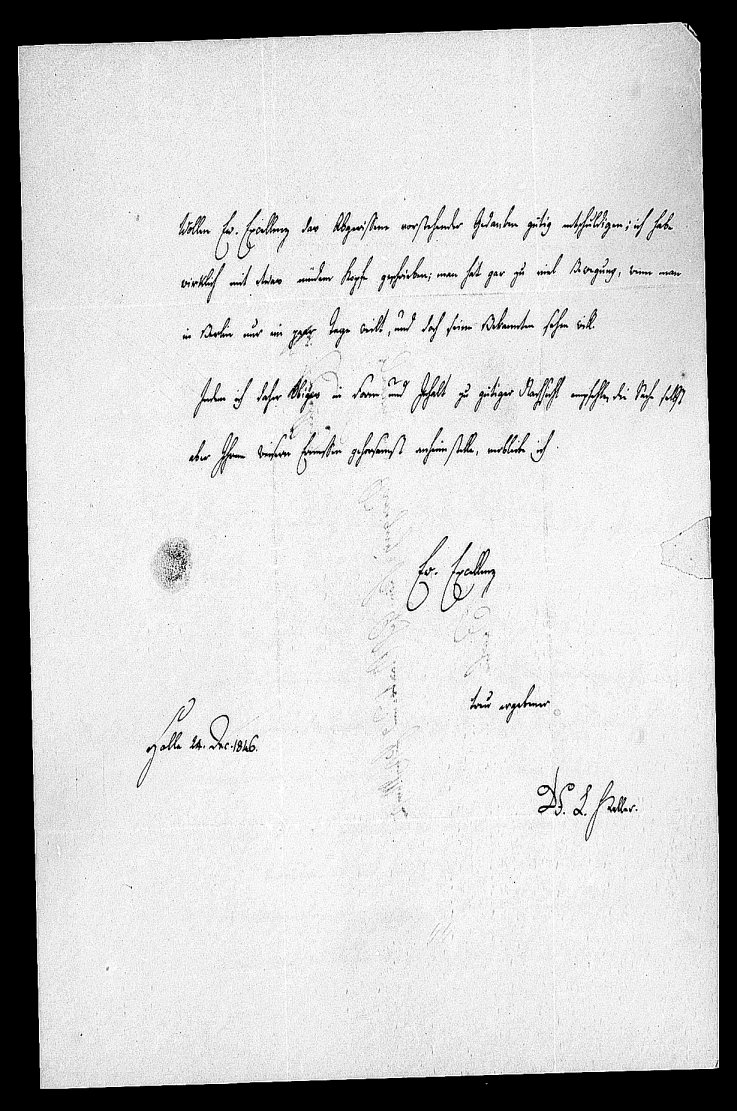 Wollen Ew. Excellenz das Abgerissene vorstehender Gedanken gütig entschuldigen; ich habe
wirklich mit etwas müdem Kopfe geschrieben; man hat gar zu viel Bewegung, wenn man
in Berlin nur ein paar Tage weilt, und doch seine Bekannten sehen will.
Indem ich daher Obiges in Form und Inhalt zu gütiger Nachsicht empfehle, die Sache selbst
aber Ihrem weisern Ermessen gehorsamst anheimstelle, verbleibe ich
Ew. Excellenz
treu ergebener
Halle 24. Dec. 1846.
Dr. L.